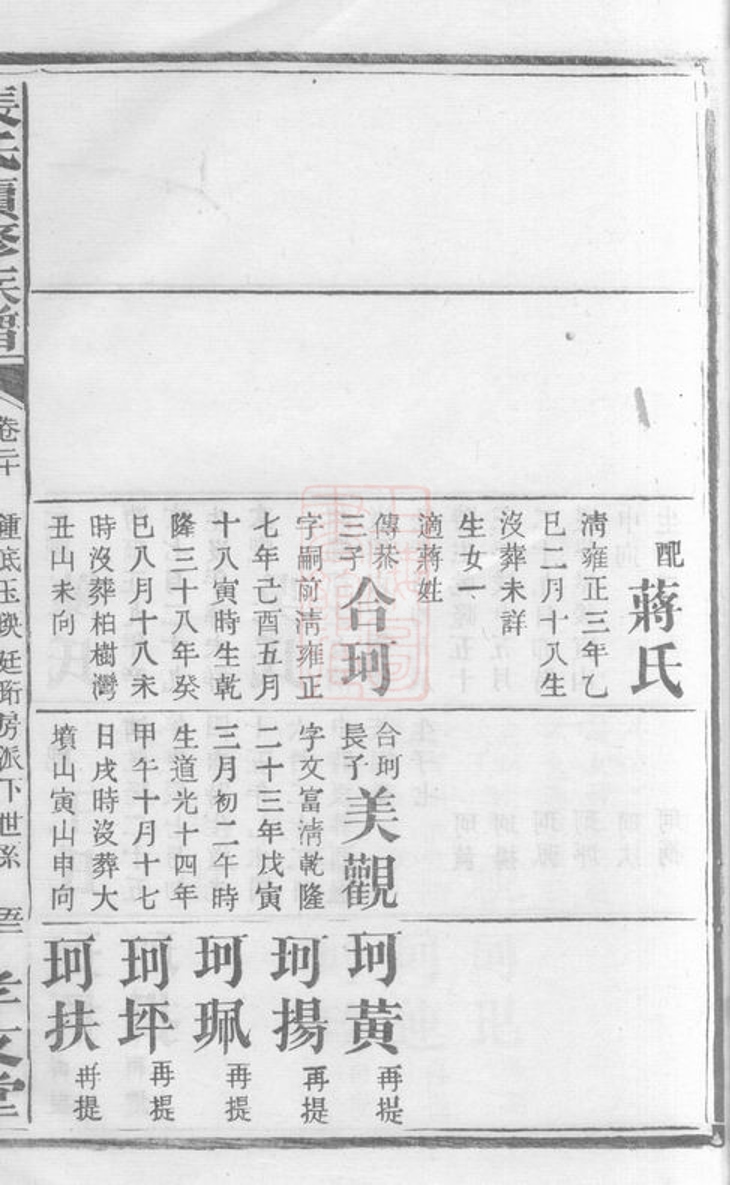 配蔣氏
清雍正三年乙
巳二月十八生
沒葬未詳
生女一
適蔣姓
傳棻
三子
合珂
字嗣前清雍正
七年己酉五月
十八寅時生乾
隆三十八年癸
巳八月十八未
時沒葬柏樹灣
丑山未向
合珂
長子
美觀
字文富清乾隆
二十三年戊寅
三月初二午時
生道光十四年
甲午十月十七
日戌時沒葬大
墳山寅山申向
珂黃再提
珂揚再提
珂珮再提
珂坪再提
珂扶再提
張氏續修族譜
卷二十
鍾底玉映廷珩房派下世系
孝友堂